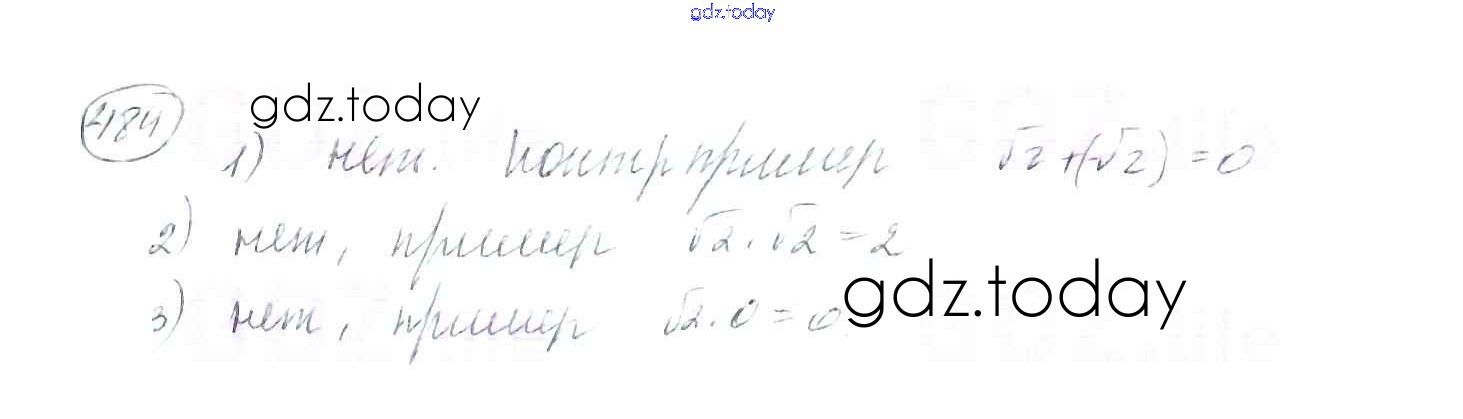 gdz.today
484 gdz.today
1) нет. Контрпример √2+(-√2)=0
2) нет, пример √2·√2=2
3) нет, пример √2·0=0 gdz.today